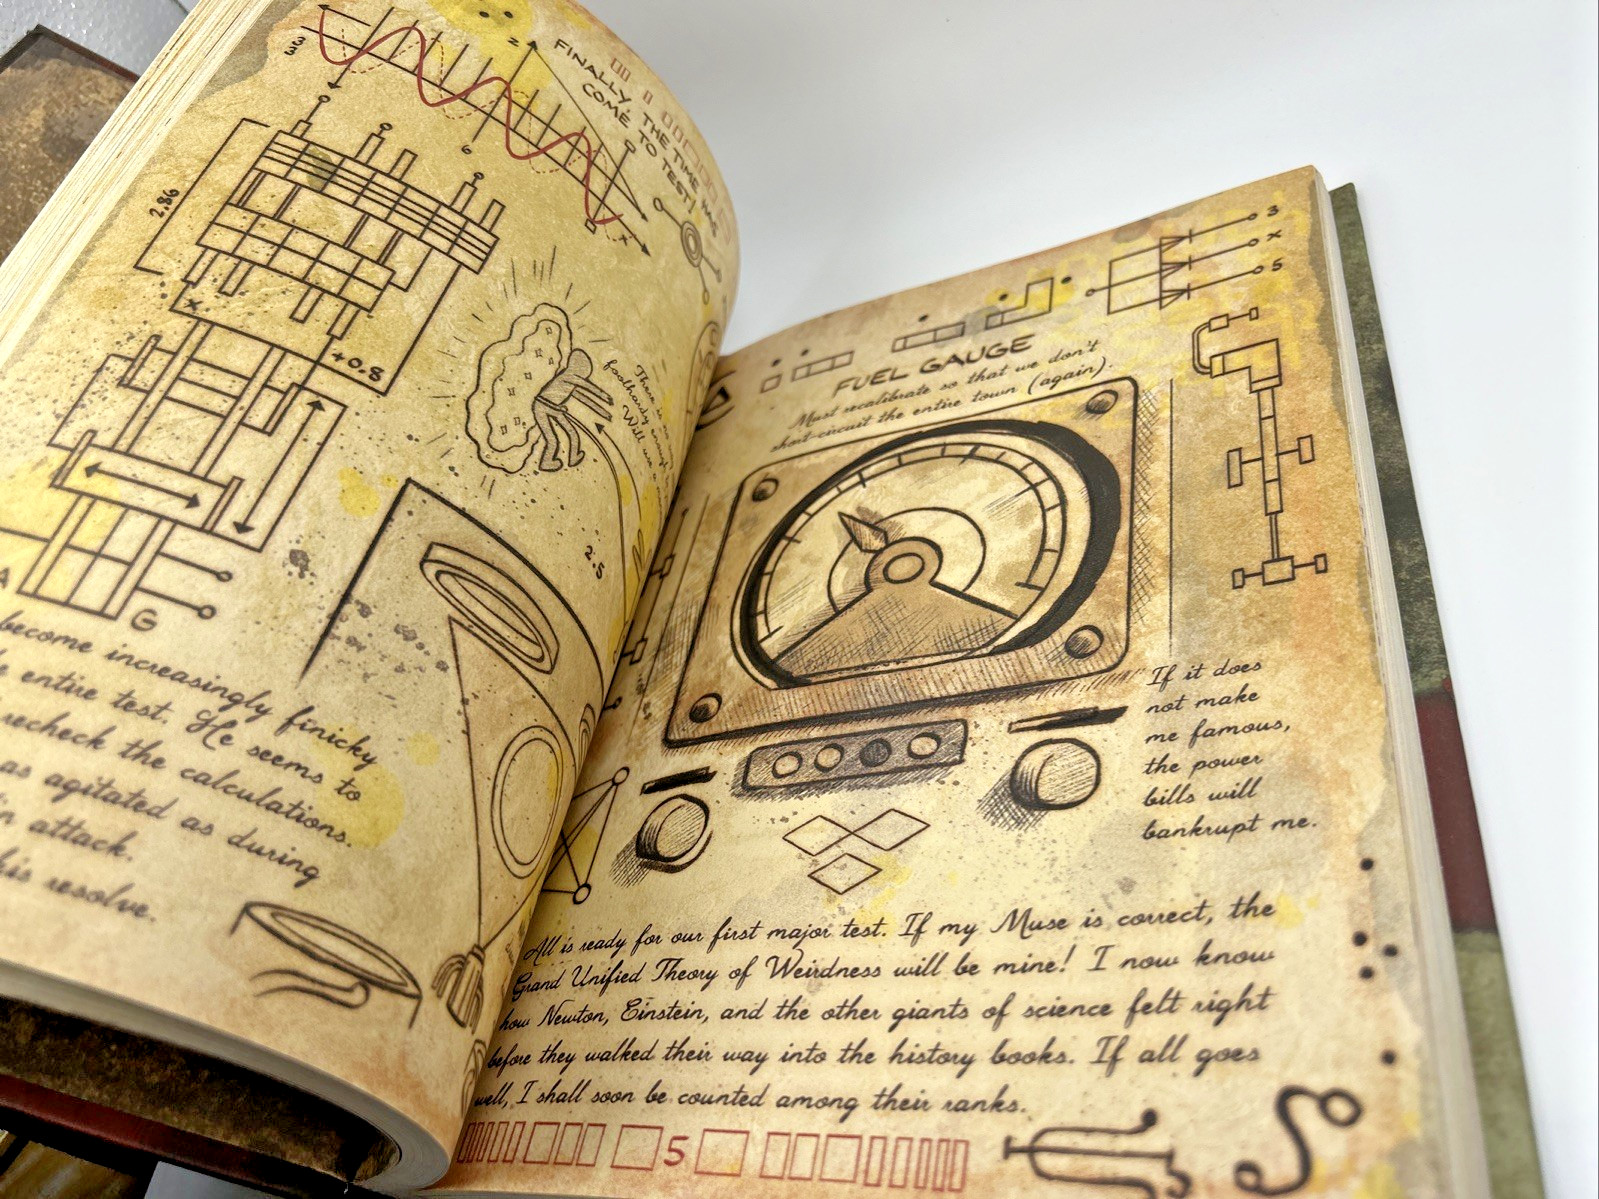 ω3
N
6
x
FINALLY, THE TIME HAS
COME TO TEST!
2.86
x
+0.8
There is no
foolhardy enough
Will use a
2.5
A
G
become increasingly finicky
entire test. He seems to
recheck the calculations.
as agitated as during
attack.
his resolve.
3
x
5
FUEL GAUGE
Must recalibrate so that we don't
short-circuit the entire town (again).
If it does
not make
me famous,
the power
bills will
bankrupt me.
All is ready for our first major test. If my Muse is correct, the
Grand Unified Theory of Weirdness will be mine! I now know
how Newton, Einstein, and the other giants of science felt right
before they walked their way into the history books. If all goes
well, I shall soon be counted among their ranks.
5